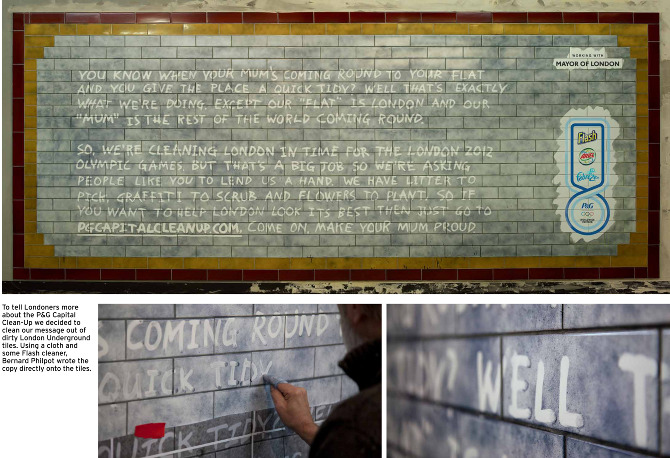 WORKING WITH
MAYOR OF LONDON
YOU KNOW WHEN YOUR MUM'S COMING ROUND TO YOUR FLAT
AND YOU GIVE THE PLACE A QUICK TIDY? WELL THAT'S EXACTLY
WHAT WE'RE DOING. EXCEPT OUR "FLAT" IS LONDON AND OUR
"MUM" IS THE REST OF THE WORLD COMING ROUND.
SO, WE'RE CLEANING LONDON IN TIME FOR THE LONDON 2012
OLYMPIC GAMES. BUT THAT'S A BIG JOB SO WE'RE ASKING
PEOPLE LIKE YOU TO LEND US A HAND. WE HAVE LITTER TO
PICK, GRAFFITI TO SCRUB AND FLOWERS TO PLANT. SO IF
YOU WANT TO HELP LONDON LOOK ITS BEST THEN JUST GO TO
PGCAPITALCLEANUP.COM. COME ON, MAKE YOUR MUM PROUD
Flash
Febreze
P&G
To tell Londoners more
about the P&G Capital
Clean-Up we decided to
clean our message out of
dirty London Underground
tiles. Using a cloth and
some Flash cleaner,
Bernard Philpot wrote the
copy directly onto the tiles.
S COMING ROUND
QUICK TIDY
QUICK TIDY?
WELL T